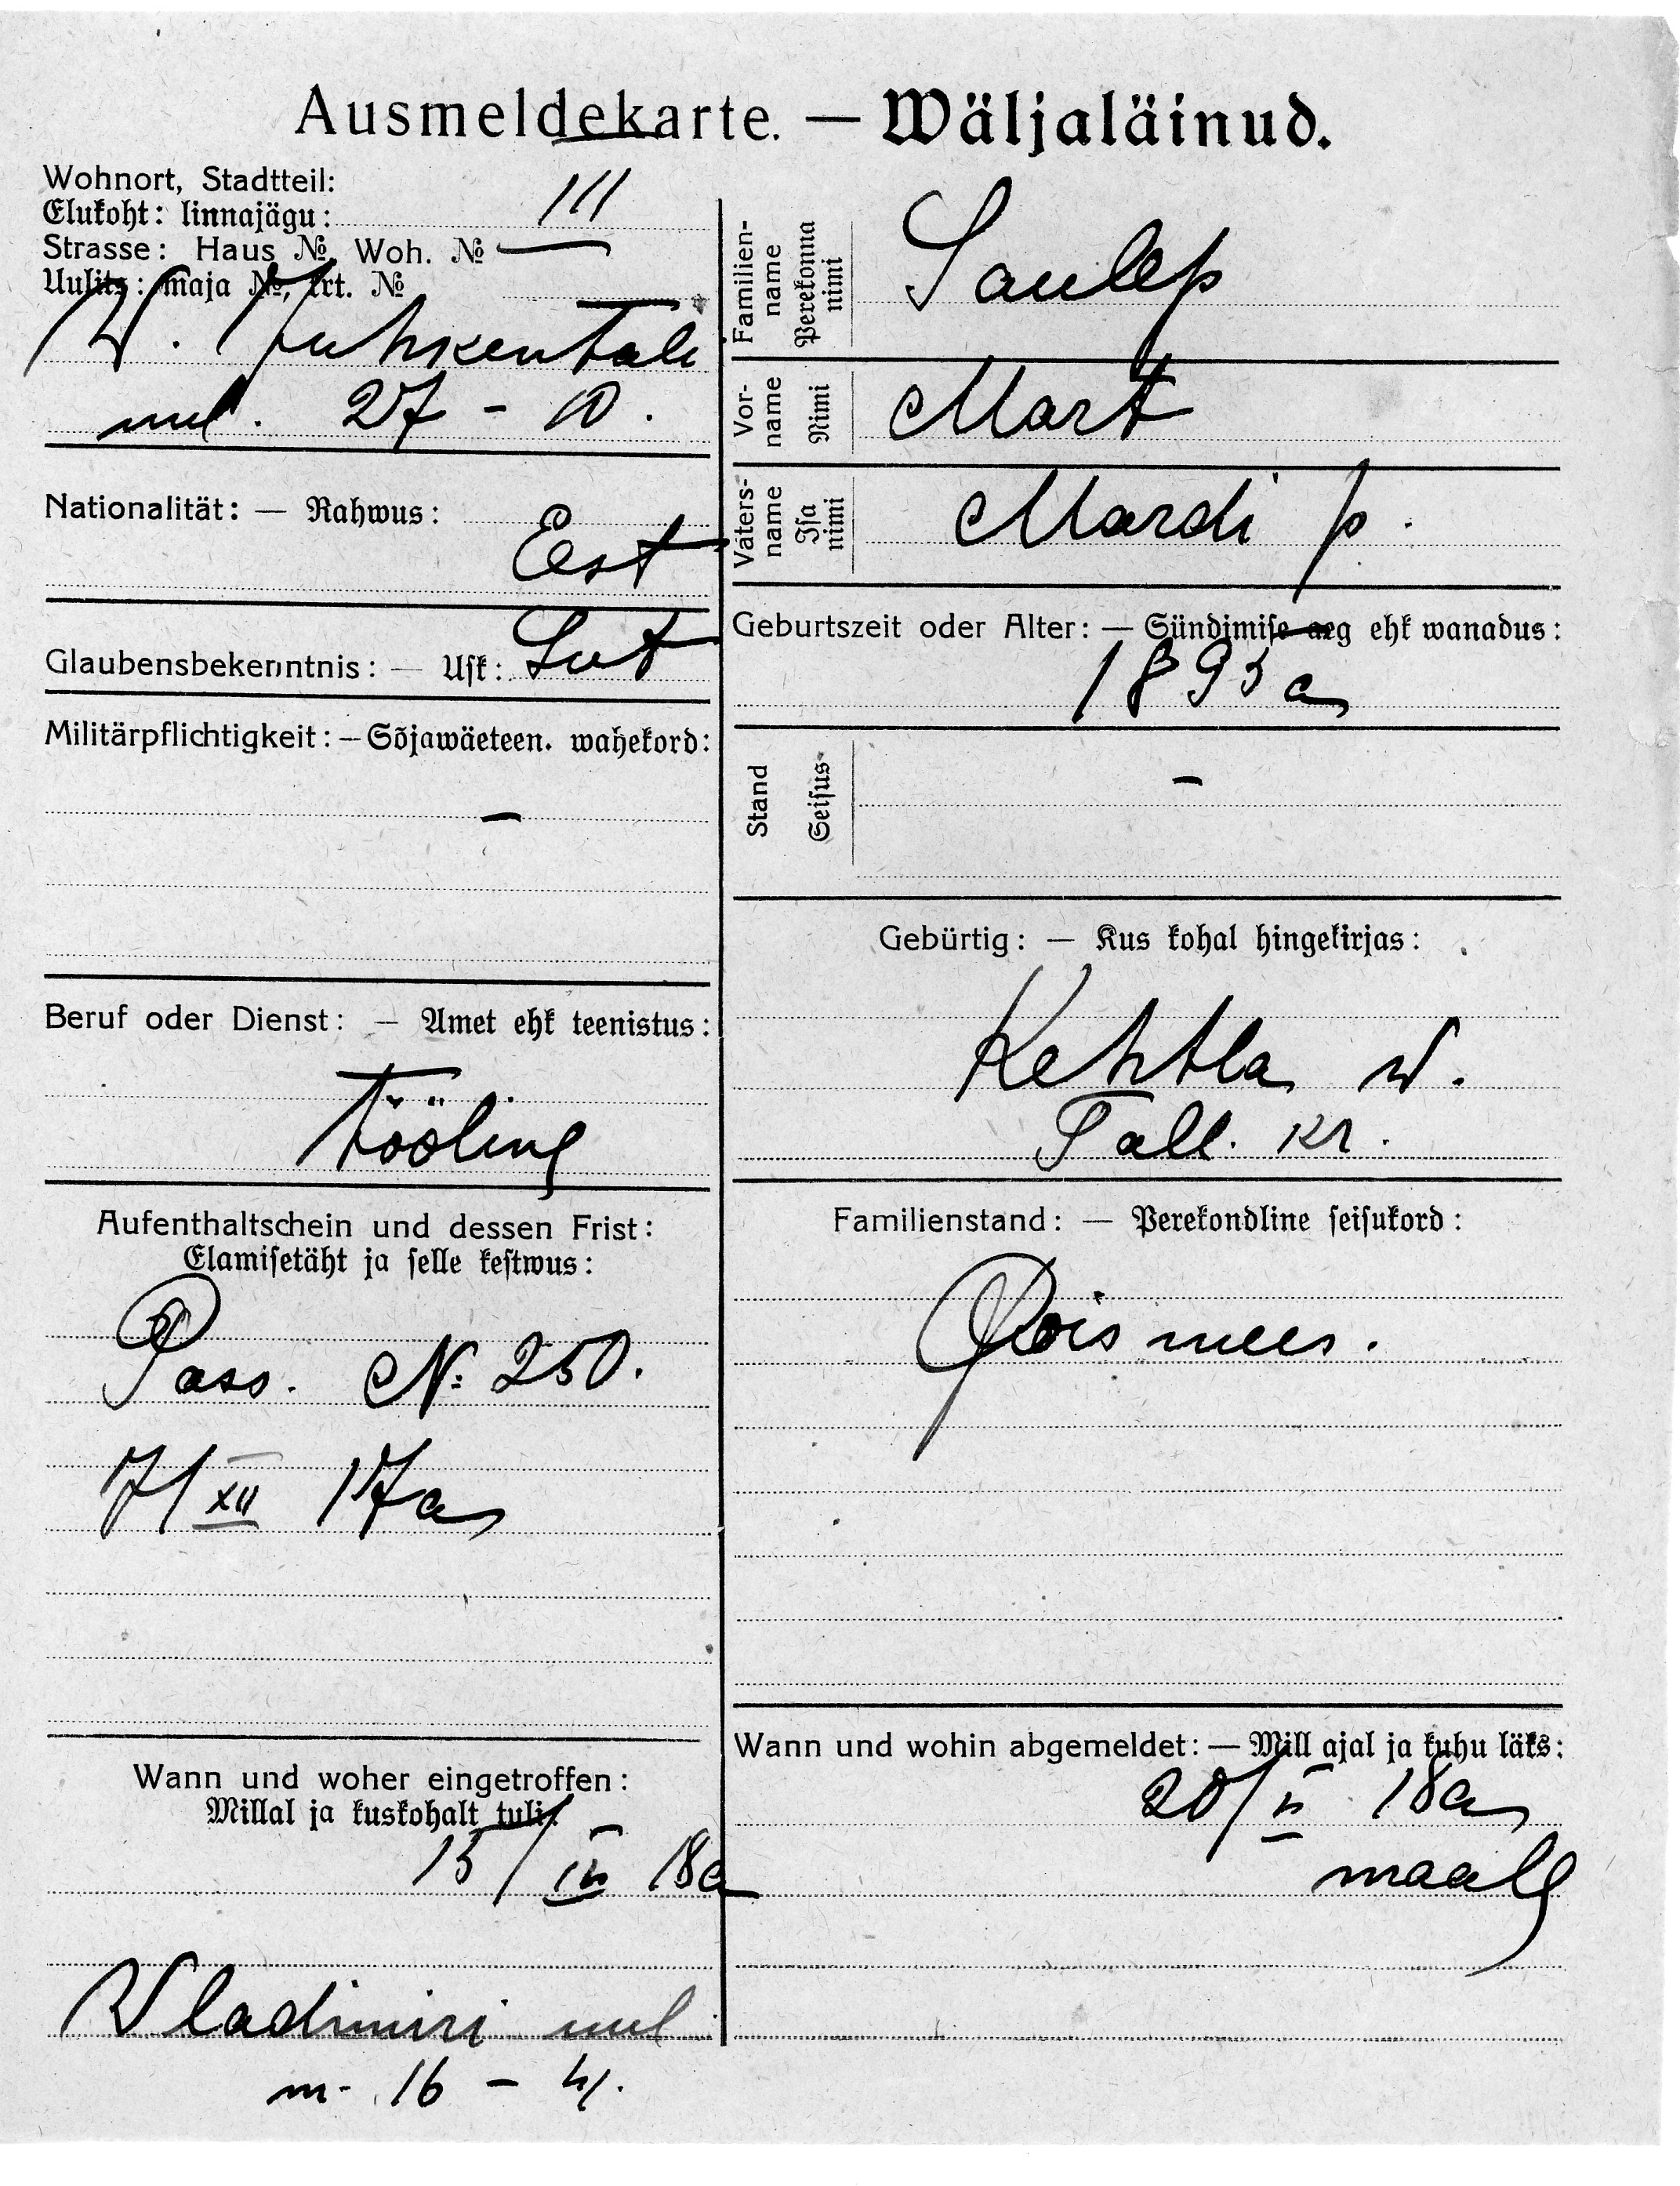 Ausmeldekarte. — Wäljaläinud.
Wohnort, Stadtteil:
Elukoht: linnajägu: III
Strasse: Haus №, Woh. №
Uulits: maja №, krt. №
W. Juhkentali
uul. 27 - 10.
Nationalität: — Rahwus:
Est
Glaubensbekenntnis: — Usk: Lut
Militärpflichtigkeit: — Sõjawäeteen. wahekord:
–
Beruf oder Dienst: — Amet ehk teenistus:
Tööline
Aufenthaltschein und dessen Frist:
Elamisetäht ja selle kestwus:
Pass. №: 250.
7/XII 17a
Wann und woher eingetroffen:
Millal ja kuskohalt tuli:
15/III 18a
Vladimiri uul
m. 16 – 41.
Familien-
name
Perekonna
nimi
Saulep
Vor-
name
Nimi
Mart
Vaters-
name
Isa
nimi
Mardi p.
Geburtszeit oder Alter: — Sündimise aeg ehk wanadus:
1895 a
Stand
Seisus
–
Gebürtig: — Kus kohal hingekirjas:
Kehtla w.
Tall. kr.
Familienstand: — Perekondline seisukord:
Pois mees.
Wann und wohin abgemeldet: — Mill ajal ja kuhu läks:
20/V 18a
maale